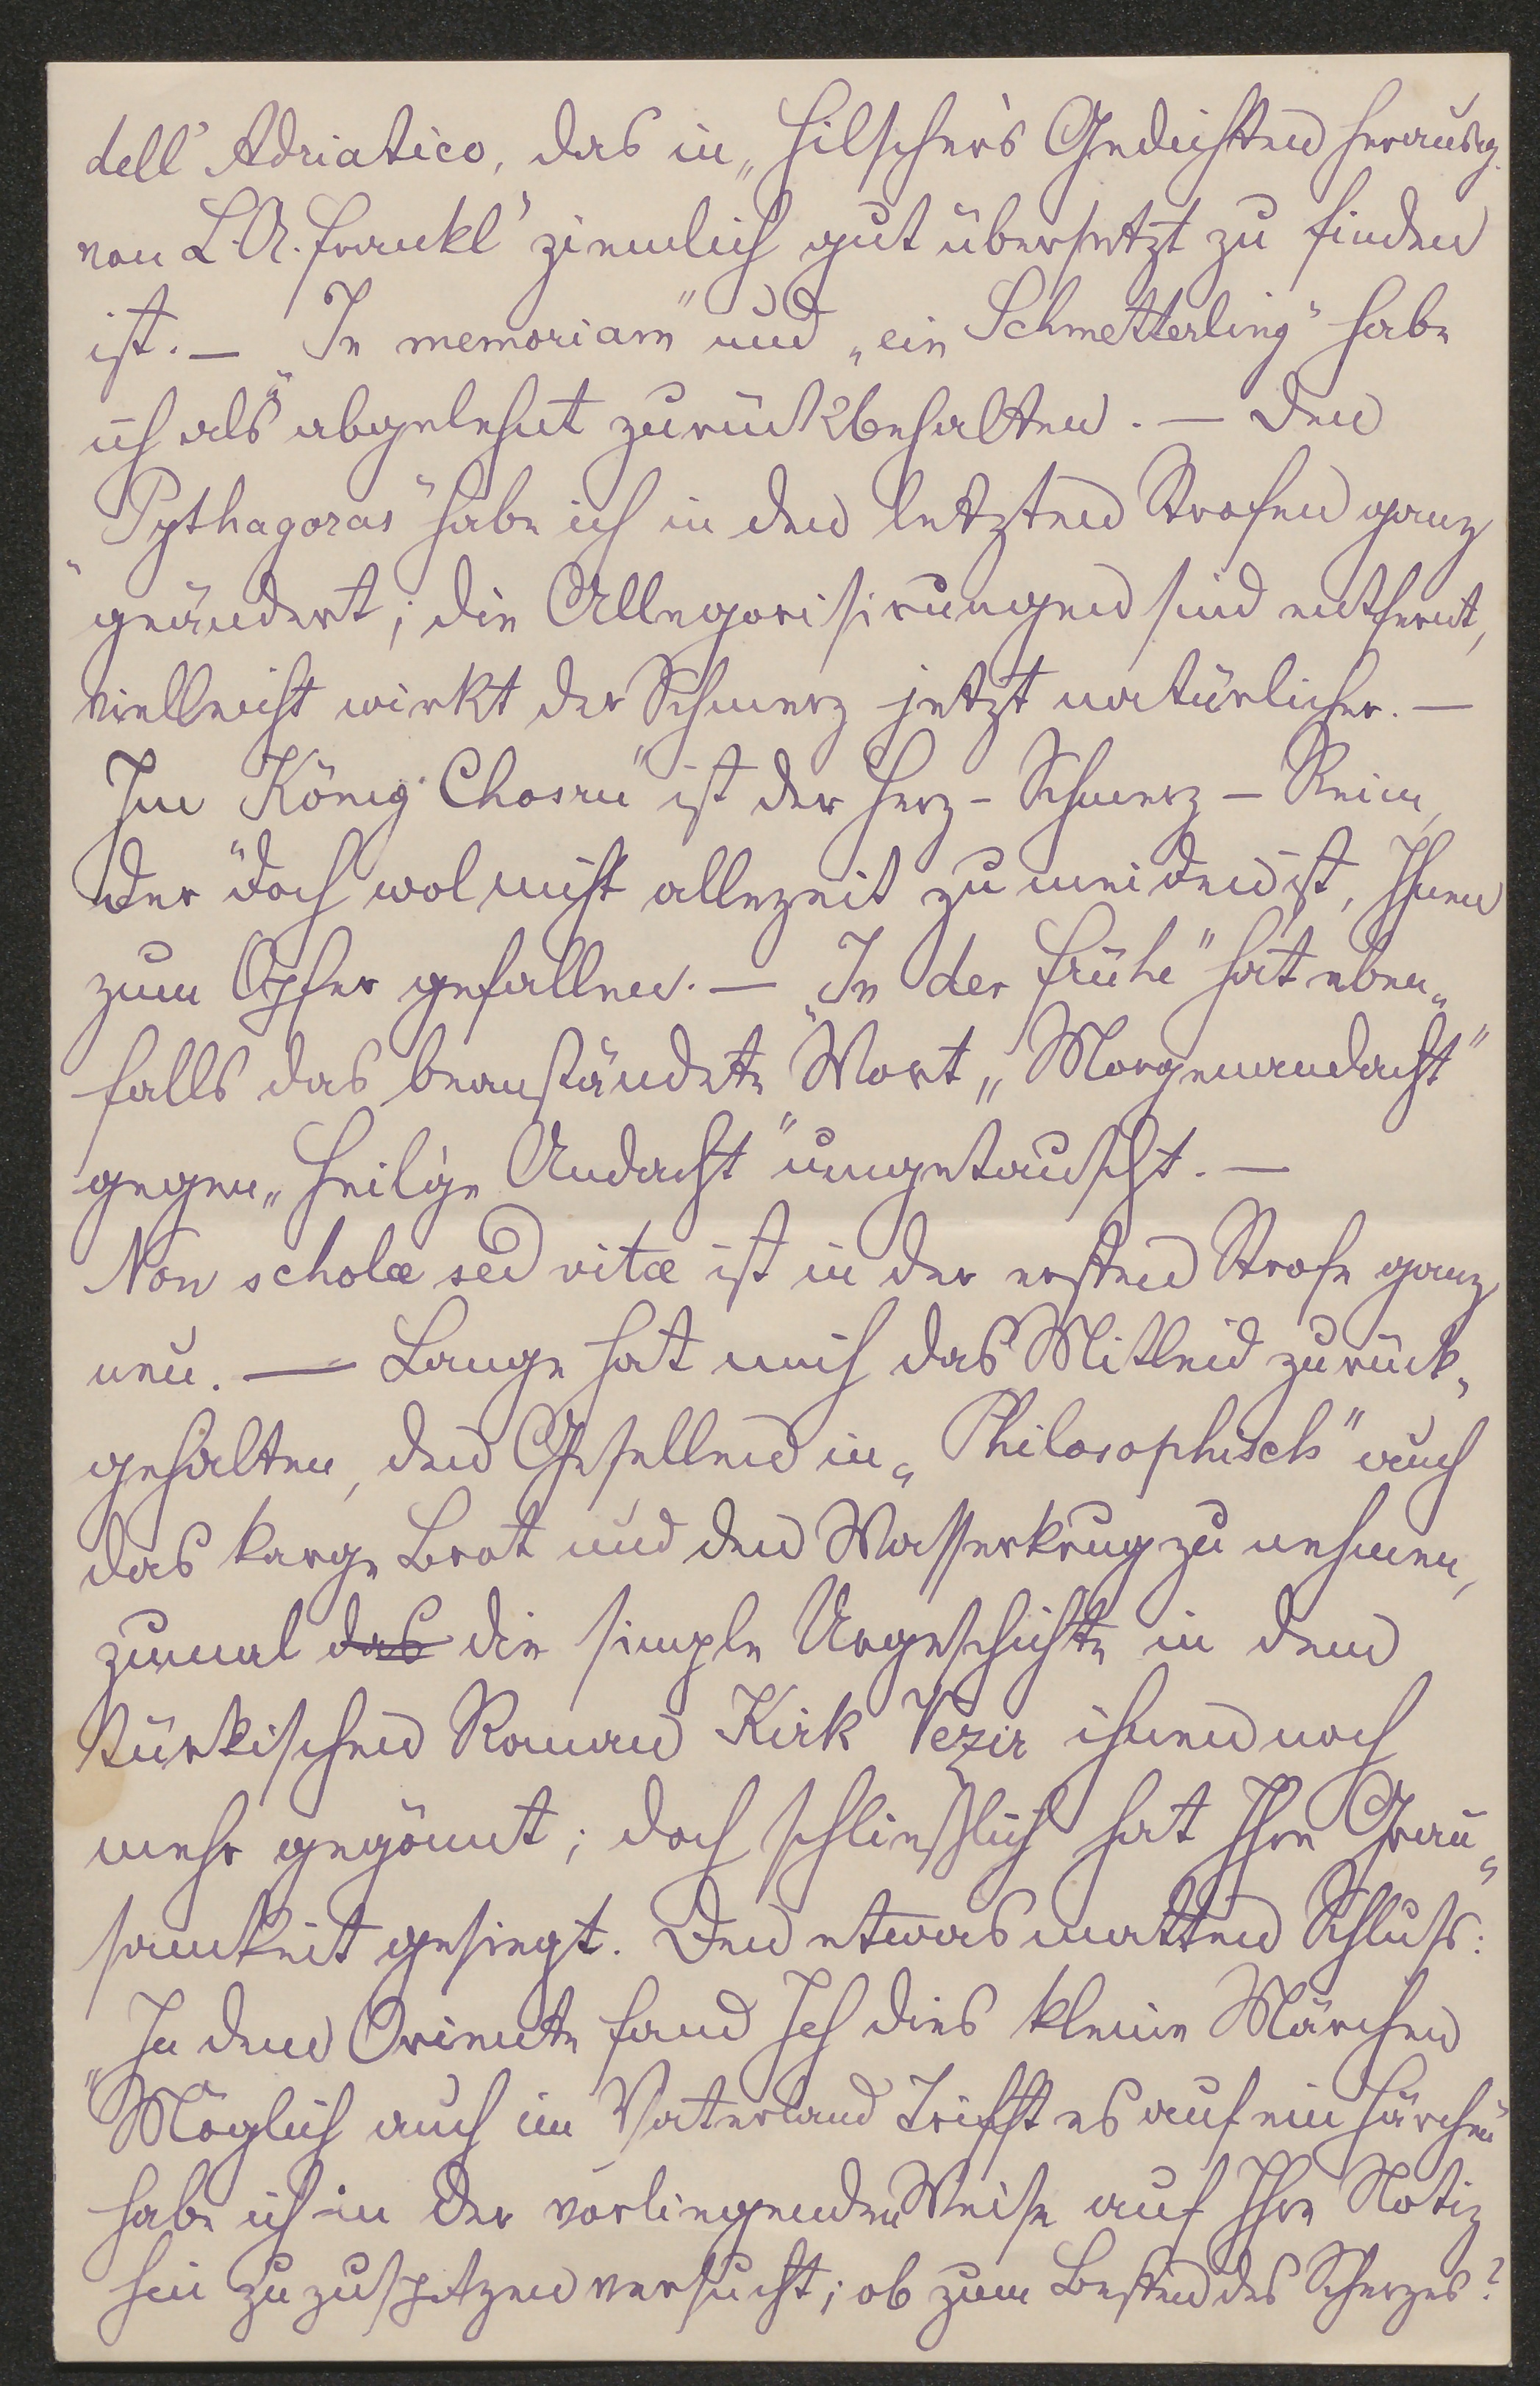 dell' Adriatico, das in „Hilscher's Gedichten herausg.
von L. A. Frankl" ziemlich gut übersetzt zu finden
ist. — „In memoriam" und „ein Schmetterling" habe
ich als abgelehnt zurückbehalten. — Den
„Pythagoras" habe ich in den letzten Strofen ganz
geändert; die Allegorisirungen sind entfernt,
vielleicht wirkt der Schmerz jetzt natürlicher. —
Im „König Chosru" ist der Herz-Schmerz-Reim,
der doch wol nicht allezeit zu meiden ist, Ihnen
zum Opfer gefallen. — „In der Frühe" hat eben-
falls das beanständete Wort „Morgenandacht"
gegen „heilige Andacht" umgetauscht. —
Non scholæ sed vitæ ist in der ersten Strofe ganz
neu. — Lange hat mich das Mitleid zurück-
gehalten, den Gesellen in „Philosophisch" auch
das karge Brot und den Wasserkrug zu nehmen,
zumal das die simple Urgeschichte in dem
türkischen Roman Kirk Vezir ihnen noch
mehr gegönnt; doch schliesslich hat Ihre Grau-
samkeit gesiegt. Den etwas matten Schluss:
„In dem Oriente fand Ich dies kleine Märchen
Möglich auch im Vaterland Trifft es auf ein Härchen"
habe ich in der vorliegenden Weise auf Ihre Notiz
hin zu zuspitzen versucht; ob zum Besten des Scherzes?